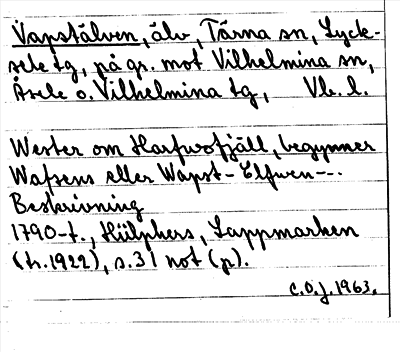 Vapstälven, älv, Tärna sn, Lyck-
sele tg, på gr. mot Vilhelmina sn,
Åsele o. Vilhelmina tg, Vb. l.
Wester om Harfwofjäll, begynner
Wafsens eller Wapst-Elfwen--.
Beskrivning
1790-t., Hülphers, Lappmarken
(tr. 1922), s. 31 not (p).
C.O.J. 1963.